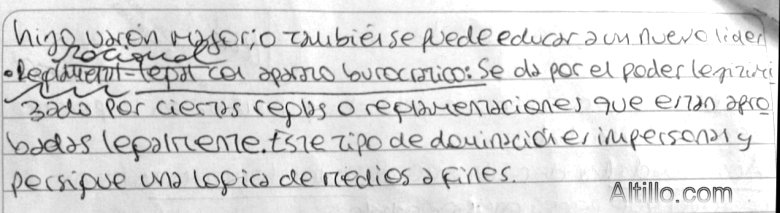 hijo varón mayor; o también se puede educar a un nuevo lider
racional
• Reglament-legal con aparato burocratico: Se da por el poder legitimi
zado por ciertas reglas o reglamentaciones que estan apro
badas legalmente. Este tipo de dominacion es impersonal y
persigue una logica de medios a fines.
Altillo.com